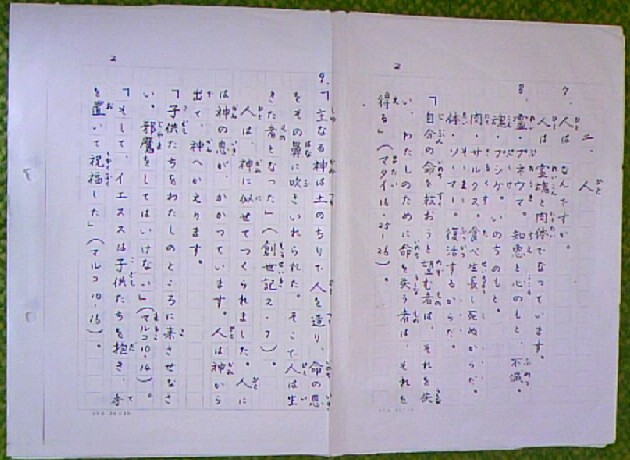 2
二、人
7. 人は なんですか。
人は 霊魂と肉体でなっています。
8. 霊・プネウマ。知恵と心のもと、不滅。
魂・プシケ。いのちのもと。
肉・サルクス。食べ生長し死ぬからだ。
体・ソーマー。復活するからだ。
「自分の命を救おうと望む者は、それを失
い、わたしのために命を失う者は、それを
得る」(マタイ16・25-26)。
2
9.「主なる神は土のちりで人を造り、命の息
をその鼻に吹きいれられた。そこで人は生
きた者となった」(創世記2・7)。
人は、神に似せてつくられました。人に
は神の息が、かかっています。人は神から
出て、神へかえります。
「子供たちをわたしのところに来させなさ
い。邪魔をしてはいけない」(マルコ10・14)。
「そして、イエススは子供たちを抱き、手
を置いて祝福した」(マルコ10・16)。